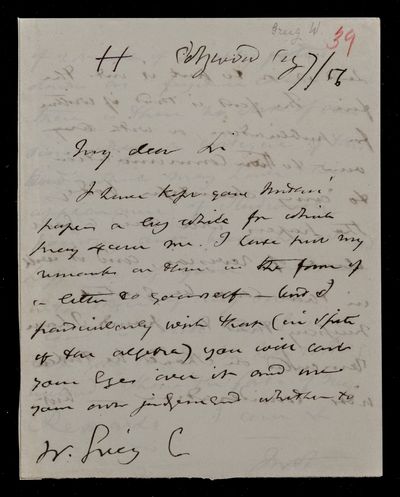 Greig W
39
H
My dear Sir
I have kept your
papers a long while for which
pray excuse me. I have put my
remarks on them in the form of
a letter to yourself – and I
particularly wish that (in spite
of the algebra) you will cast
your eyes over it and use
your own judgement whether to
W. C